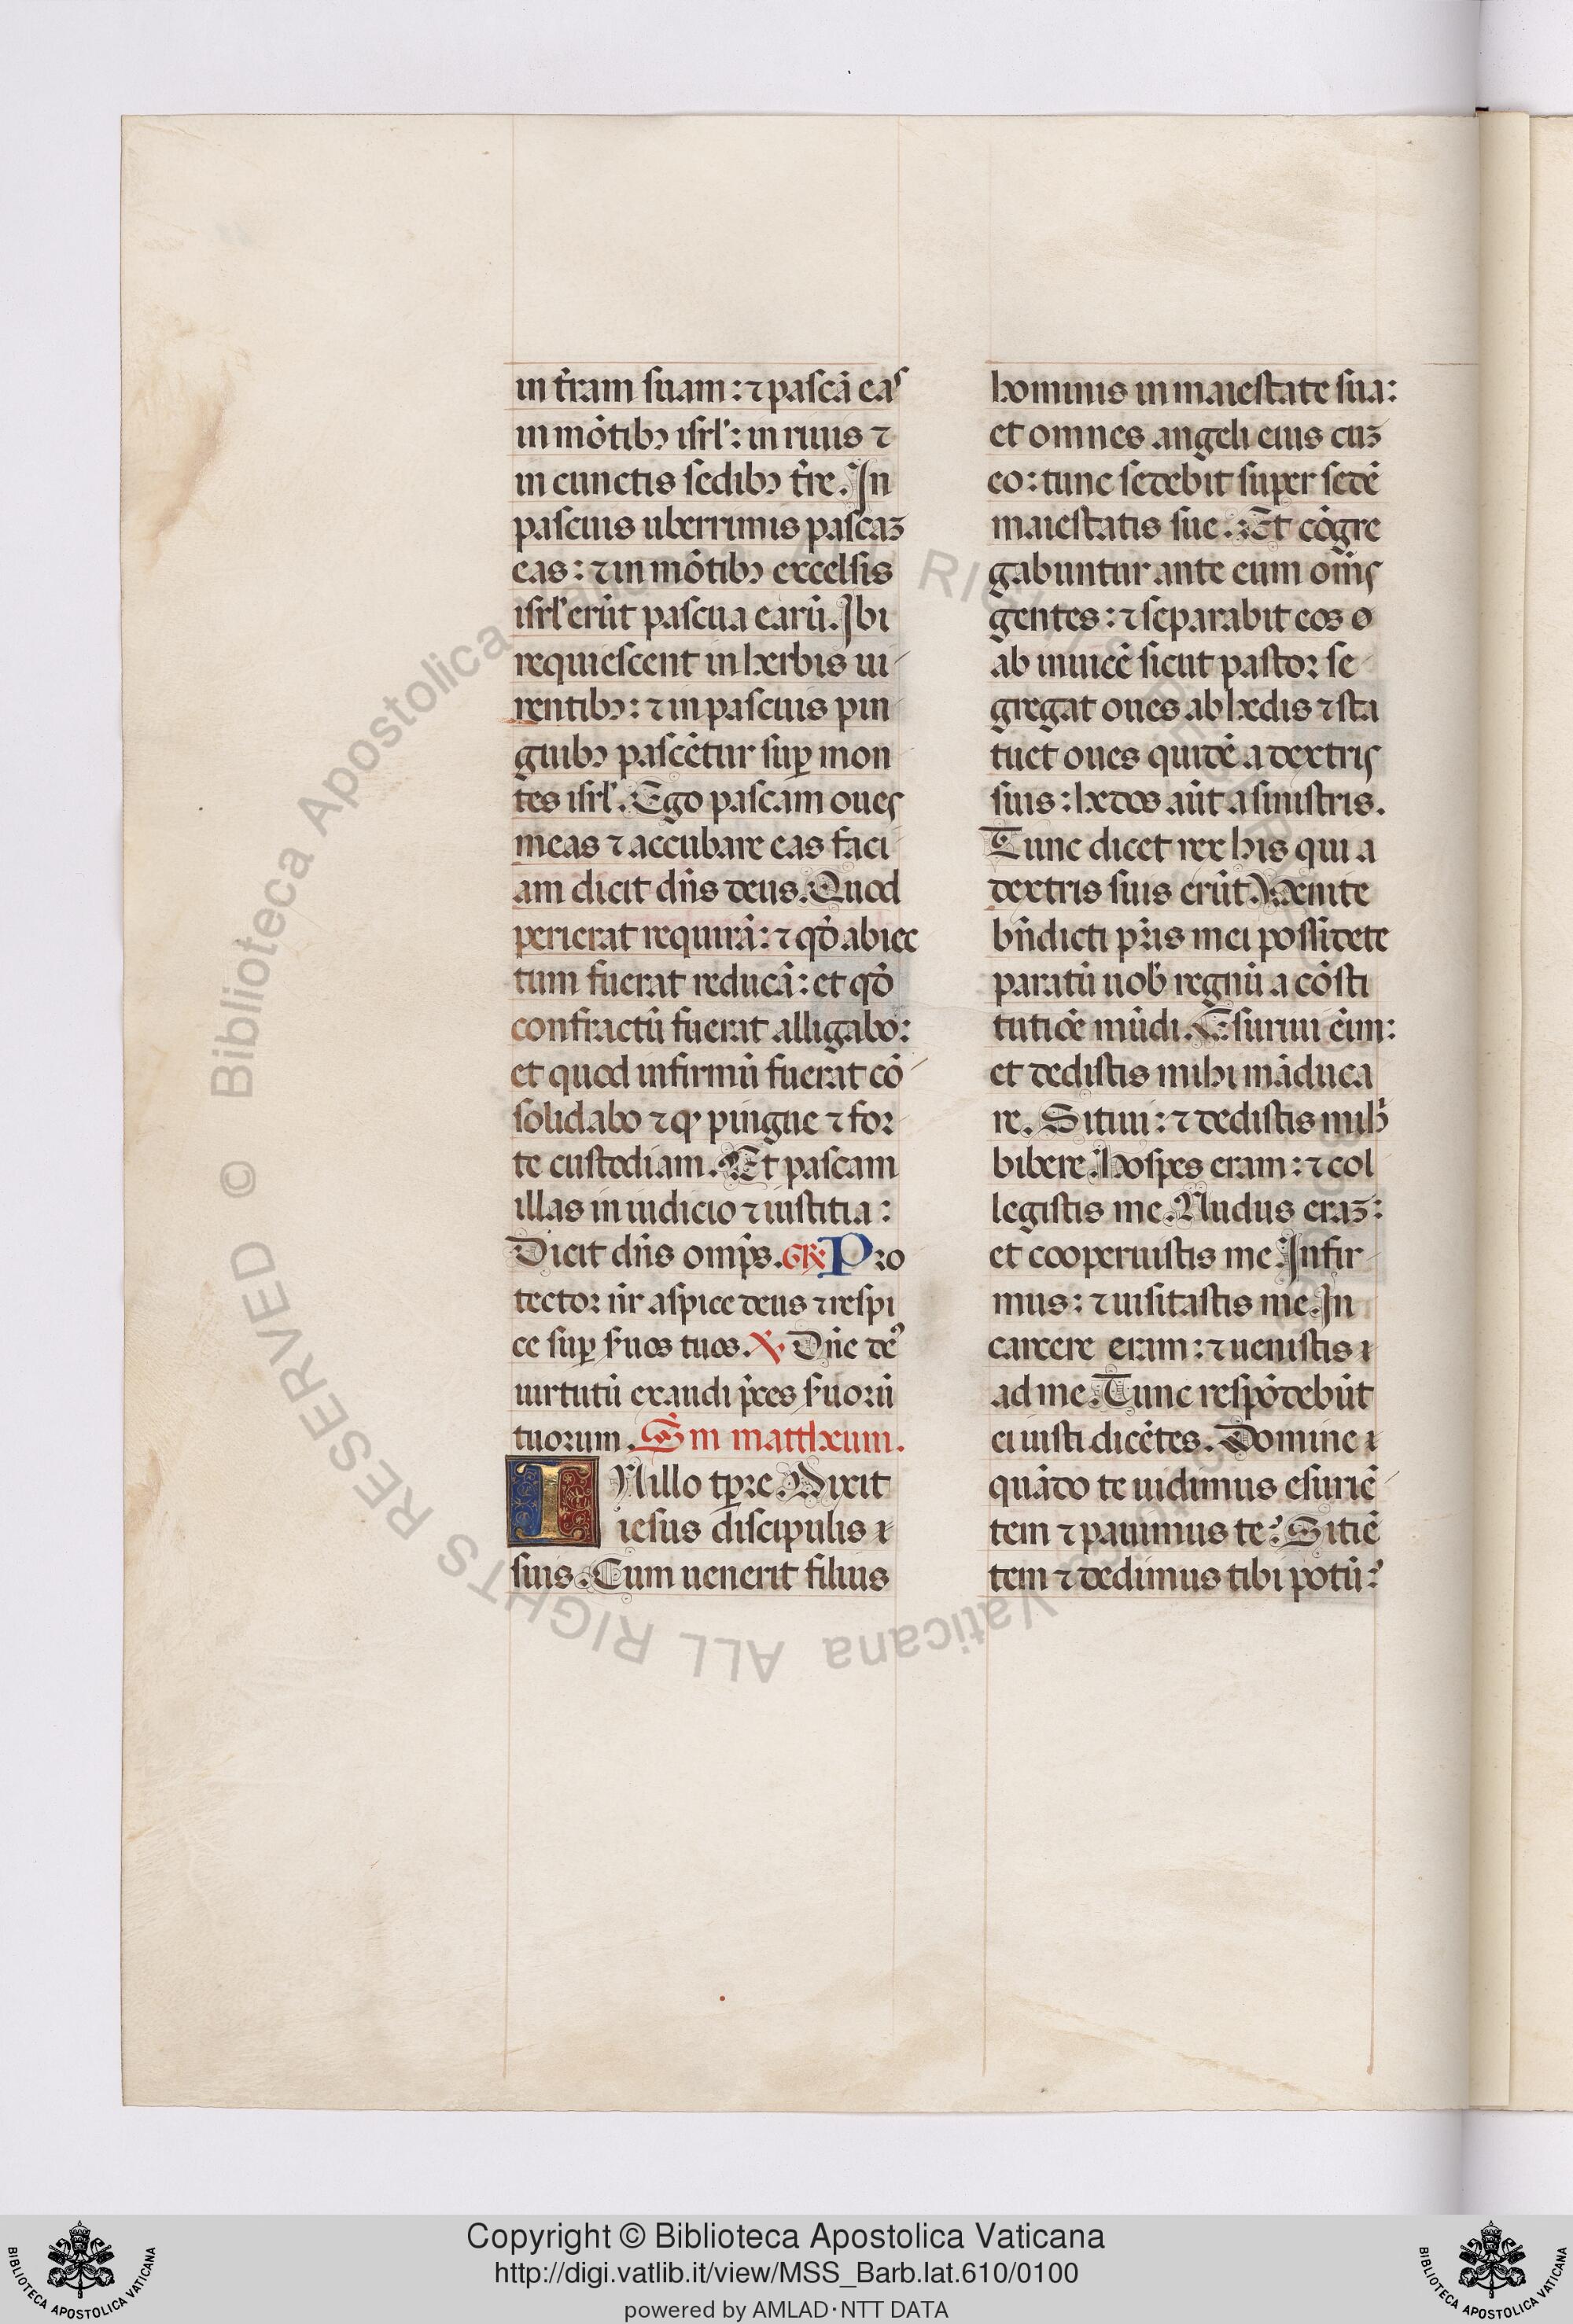 in t̄ram suam: ⁊ pascā eas
in mōtibꝫ isrl̄: in riuis ⁊
in cunctis sedibꝫ t̄re. In
pascuis uberrimis pascaꝫ
eas: ⁊ in mōtibꝫ excelsis
isrl̄ erūt pascua earū. Ibi
requiescent in herbis ui
rentibꝫ: ⁊ in pascuis pin
guibꝫ pascētur suꝑ mon
tes isrl̄. Ego pascam oues
meas ⁊ accubare eas faci
am dicit dn̄s deus. Quod
perierat requirā: ⁊ qđ abiec
tum fuerat reducā: et qđ
confractū fuerat alligabo:
et quod infirmū fuerat cō
solidabo ⁊ ꝙ pingue ⁊ for
te custodiam. Et pascam
illas in iudicio ⁊ iustitia:
Dicit dn̄s omp̄s. GR̄ Pro
tector nr̄ aspice deus ⁊ respi
ce suꝑ s̄uos tuos. ℣ Dn̄e deꝰ
uirtutū exaudi p̄ces s̄uorū
tuorum. Sm̄ mattheum.
IN illo tp̄re. Dixit
iesus discipulis
suis. Cum uenerit filius
hominis in maiestate sua:
et omnes angeli eius cuꝫ
eo: tunc sedebit super sedē
maiestatis sue. Et cōgre
gabuntur ante eum om̄s
gentes: ⁊ separabit eos
ab inuicē sicut pastor se
gregat oues ab hedis ⁊ sta
tuet oues quidē a dextris
suis: hedos aūt a sinistris.
Tunc dicet rex his qui a
dextris suis erūt. Venite
bn̄dicti pr̄is mei possidete
paratū uob̄ regnū a cōsti
tutiōe mūdi. Esuriui en̄im:
et dedistis mihi māduca
re. Sitiui: ⁊ dedistis mih̄
bibere. Hospes eram: ⁊ col
legistis me. Nudus eraꝫ:
et cooperuistis me. Infir
mus: ⁊ uisitastis me. In
carcere eram: ⁊ uenistis
ad me. Tunc respōdebūt
ei iusti dicētes. Domine
quādo te uidimus esuriē
tem ⁊ pauimus te? Sitiē
tem ⁊ dedimus tibi potū?
© Biblioteca Apostolica Vaticana ALL RIGHTS RESERVED
Copyright © Biblioteca Apostolica Vaticana
http://digi.vatlib.it/view/MSS_Barb.lat.610/0100
powered by AMLAD·NTT DATA
BIBLIOTECA APOSTOLICA VATICANA
BIBLIOTECA APOSTOLICA VATICANA